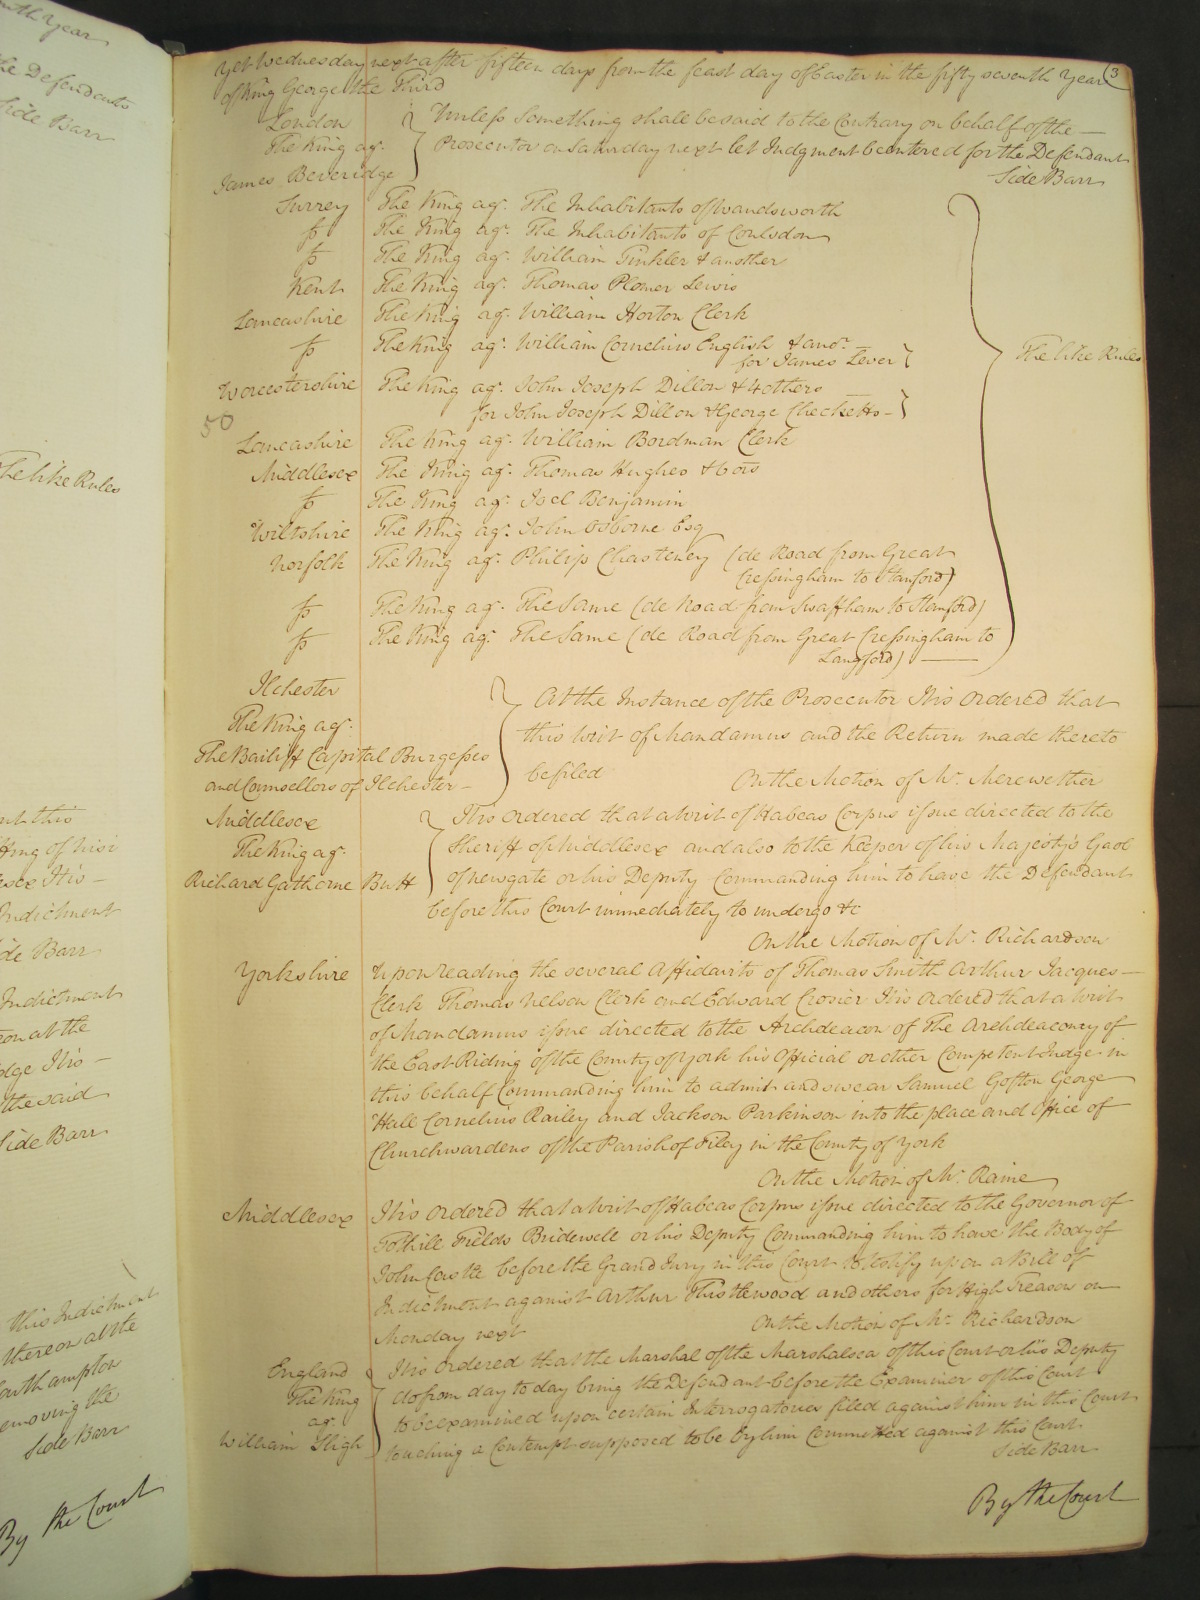 uth Year
the Defendants
Side Barr
The like Rules
nt this
King of
sex It is –
Indictment
Side Barr
Indictment
on at the
dge It is –
the said
Side Barr
this Indictment
thereon at the
Southampton
removing the
Side Barr
By the Court
3
Yet Wednesday next after fifteen days from the feast day of Easter in the fifty seventh Year
of King George the Third
London
The King agt.
James Beveridge
Unless Something shall be said to the Contrary on behalf of the —
Prosecutor on Saturday next let Judgment be entered for the Defendant
Side Barr
Surrey The King agt. The Inhabitants of Wandsworth
fs The King agt. The Inhabitants of Coulsdon
fs The King agt. William Tinkler & another
Kent The King agt. Thomas Plomer Lewis
Lancashire The King agt. William Horton Clerk
fs The King agt. William Cornelius English & anor.
for James Lever
The like Rules
Worcestershire The King agt. John Joseph Dillon & 4 others
for John Joseph Dillon & George Checketts –
50
Lancashire The King agt. William Bordman Clerk
Middlesex The King agt. Thomas Hughes & ors
fs The King agt. Joel Benjamin
Wiltshire The King agt. John Osborne Esq
Norfolk The King agt. Philip Chasteney (de Road from Great
Cressingham to Stanford)
fs The King agt. The Same (de Road from Swaffham to Stanford)
fs The King agt. The Same (de Road from Great Cressingham to
Langford) —
Ilchester
The King agt.
The Bailiff Capital Burgesses
and Counsellors of Ilchester –
At the Instance of the Prosecutor It is Ordered that
this Writ of Mandamus and the Return made thereto
be filed On the Motion of Mr. Merewether
Middlesex
The King agt.
Richard Gathorne Butt
It is Ordered that a Writ of Habeas Corpus issue directed to the
Sheriff of Middlesex and also to the Keeper of his Majesty's Gaol
of Newgate or his Deputy Commanding him to have the Defendant
before this Court immediately to undergo &c
On the Motion of Mr. Richardson
Yorkshire Upon reading the several Affidavits of Thomas Smith Arthur Jacques —
Clerk Thomas Nelson Clerk and Edward Crosier It is Ordered that a Writ
of Mandamus issue directed to the Archdeacon of The Archdeaconry of
the East Riding of the County of York his Official or other Competent Judge in
this behalf Commanding him to admit and swear Samuel Gofton George
Hall Cornelius Railey and Jackson Parkinson into the place and Office of
Churchwardens of the Parish of Filey in the County of York
On the Motion of Mr. Raine
Middlesex It is Ordered that a Writ of Habeas Corpus issue directed to the Governor of
Tothill Fields Bridewell or his Deputy Commanding him to have the Body of
John Castle before the Grand Jury in this Court to testify upon a Bill of
Indictment against Arthur Thistlewood and others for High Treason on
Monday next On the Motion of Mr. Richardson
England
The King
agt.
William Sligh
It is Ordered that the Marshal of the Marshalsea of this Court or his Deputy
do from day to day bring the Defendant before the Examiner of this Court
to be examined upon certain Interrogatories filed against him in this Court
touching a Contempt supposed to be by him Committed against this Court
Side Barr
By the Court